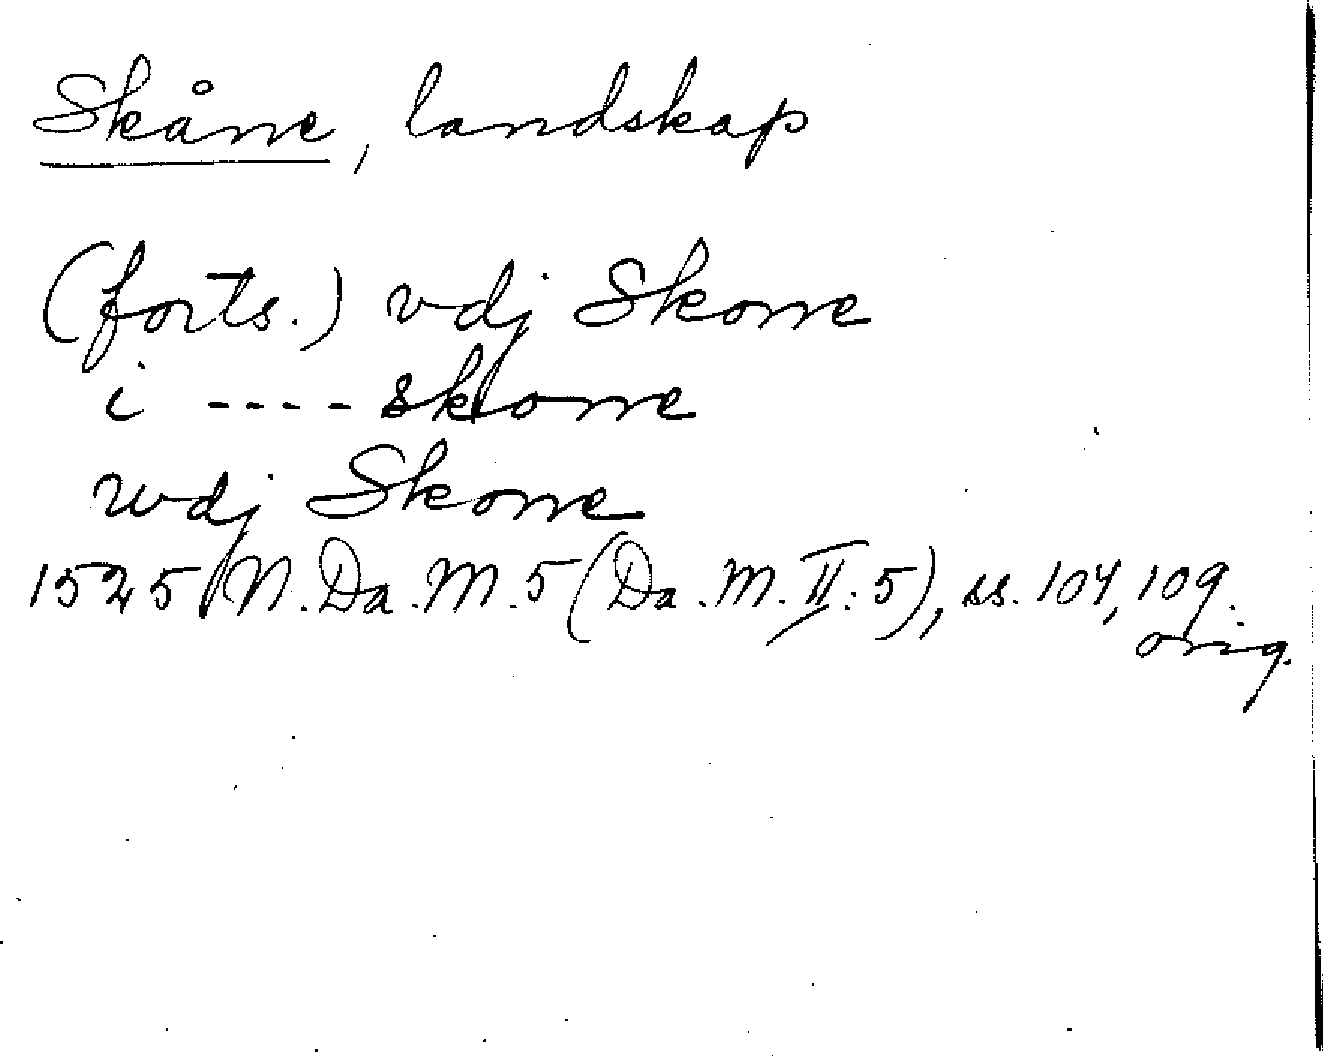 Skåne, landskap
(forts.) vdj Skone
i ---- skone
wdj Skone
1525 N. Da. M. 5 (Da. M. II: 5), ss. 104, 109.
orig.